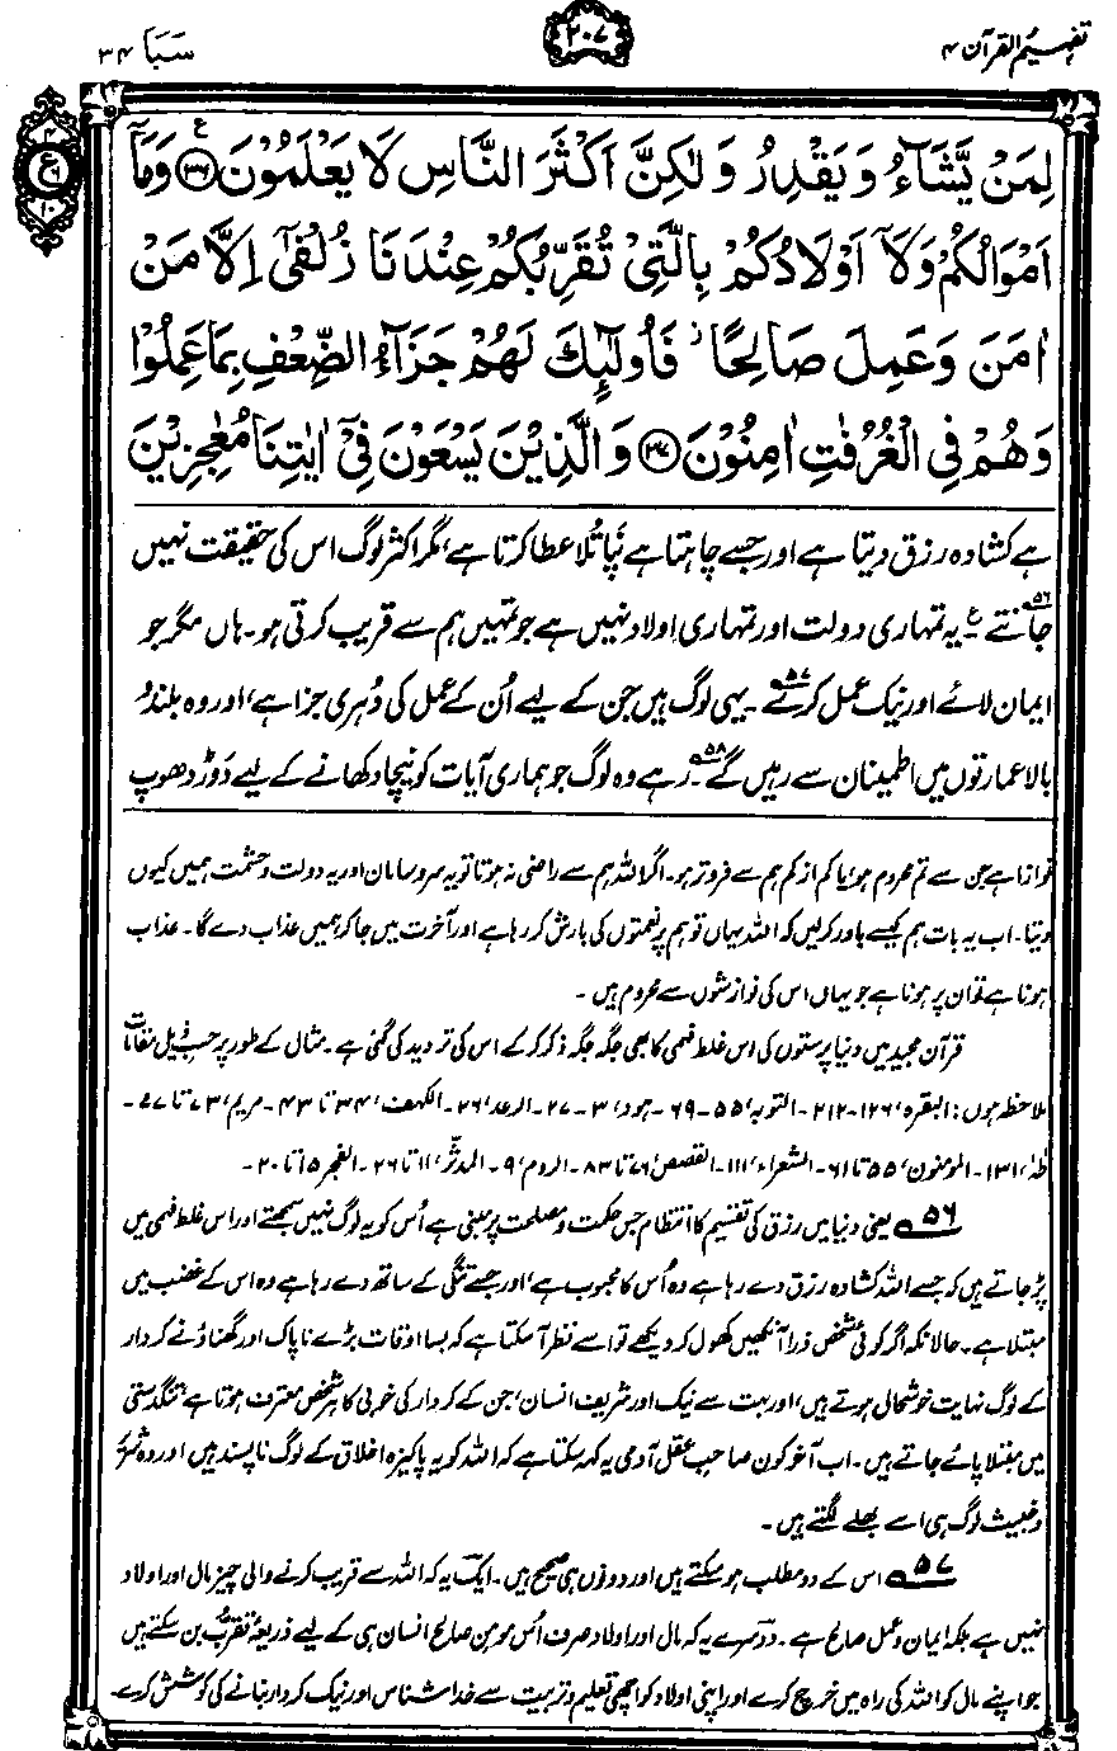 تفہیم القرآن ۴
۲۰۷
سَبَا ۳۴
لِمَنْ يَّشَآءُ وَيَقْدِرُ وَلٰكِنَّ اَكْثَرَ النَّاسِ لَا يَعْلَمُوْنَ ﴿۳۶﴾ ع وَمَآ
اَمْوَالُكُمْ وَلَآ اَوْلَادُكُمْ بِالَّتِيْ تُقَرِّبُكُمْ عِنْدَنَا زُلْفٰٓى اِلَّا مَنْ
اٰمَنَ وَعَمِلَ صَالِحًا ز فَاُولٰٓئِكَ لَهُمْ جَزَآءُ الضِّعْفِ بِمَا عَمِلُوْا
وَهُمْ فِي الْغُرُفٰتِ اٰمِنُوْنَ ﴿۳۷﴾ وَالَّذِيْنَ يَسْعَوْنَ فِيْٓ اٰيٰتِنَا مُعٰجِزِيْنَ
ہے کشادہ رزق دیتا ہے اور جسے چاہتا ہے نَپا تُلا عطا کرتا ہے، مگر اکثر لوگ اس کی حقیقت نہیں
جانتے ۵۶؎ ع یہ تمہاری دولت اور تمہاری اولاد نہیں ہے جو تمہیں ہم سے قریب کرتی ہو۔ ہاں مگر جو
ایمان لائے اور نیک عمل کرے ۵۷؎۔ یہی لوگ ہیں جن کے لیے اُن کے عمل کی دُہری جزا ہے، اور وہ بلند و
بالا عمارتوں میں اطمینان سے رہیں گے ۵۸؎۔ رہے وہ لوگ جو ہماری آیات کو نیچا دکھانے کے لیے دَوڑ دھوپ
نوازا ہے جن سے تم محروم ہو، یا کم از کم ہم سے فروتر ہو۔ اگر اللہ ہم سے راضی نہ ہوتا تو یہ سروسامان اور یہ دولت و حشمت ہمیں کیوں
دیتا۔ اب یہ بات ہم کیسے باور کرلیں کہ اللہ یہاں تو ہم پر نعمتوں کی بارش کر رہا ہے اور آخرت میں جا کر ہمیں عذاب دے گا۔ عذاب
ہونا ہے تو ان پر ہونا ہے جو یہاں اس کی نوازشوں سے محروم ہیں۔
قرآن مجید میں دنیا پرستوں کی اس غلط فہمی کا بھی جگہ جگہ ذکر کرکے اس کی تردید کی گئی ہے۔ مثال کے طور پر حسبِ ذیل مقامات
ملاحظہ ہوں: البقرہ، ۱۲۶-۲۱۲۔ التوبہ، ۵۵-۶۹۔ ہود، ۳-۲۷۔ الرعد، ۲۶۔ الکہف، ۳۴ تا ۴۳۔ مریم، ۷۳ تا ۷۷۔
طٰہٰ، ۱۳۱۔ المومنون، ۵۵ تا ۶۱۔ الشعراء، ۱۱۱۔ القصص، ۷۶ تا ۸۳۔ الروم، ۹۔ المدثّر، ۱۱ تا ۲۶۔ الفجر، ۱۵ تا ۲۰۔
۵۶؎ یعنی دنیا میں رزق کی تقسیم کا انتظام جس حکمت و مصلحت پر مبنی ہے اُس کو یہ لوگ نہیں سمجھتے اور اس غلط فہمی میں
پڑ جاتے ہیں کہ جسے اللہ کشادہ رزق دے رہا ہے وہ اُس کا محبوب ہے، اور جسے تنگی کے ساتھ دے رہا ہے وہ اس کے غضب میں
مبتلا ہے۔ حالانکہ اگر کوئی شخص ذرا آنکھیں کھول کر دیکھے تو اسے نظر آ سکتا ہے کہ بسا اوقات بڑے ناپاک اور گھناؤنے کردار
کے لوگ نہایت خوشحال ہوتے ہیں، اور بہت سے نیک اور شریف انسان، جن کے کردار کی خوبی کا ہر شخص معترف ہوتا ہے، تنگدستی
میں مبتلا پائے جاتے ہیں۔ اب آخر کون صاحبِ عقل آدمی یہ کہہ سکتا ہے کہ اللہ کو یہ پاکیزہ اخلاق کے لوگ ناپسند ہیں اور وہ شریر
و خبیث لوگ ہی اسے بھلے لگتے ہیں۔
۵۷؎ اس کے دو مطلب ہو سکتے ہیں اور دونوں ہی صحیح ہیں۔ ایک یہ کہ اللہ سے قریب کرنے والی چیز مال اور اولاد
نہیں ہے بلکہ ایمان و عمل صالح ہے۔ دوسرے یہ کہ مال اور اولاد صرف اُس مومن صالح انسان ہی کے لیے ذریعۂ تقرّب بن سکتے ہیں
جو اپنے مال کو اللہ کی راہ میں خرچ کرے اور اپنی اولاد کو اچھی تعلیم و تربیت سے خداشناس اور نیک کردار بنانے کی کوشش کرے۔